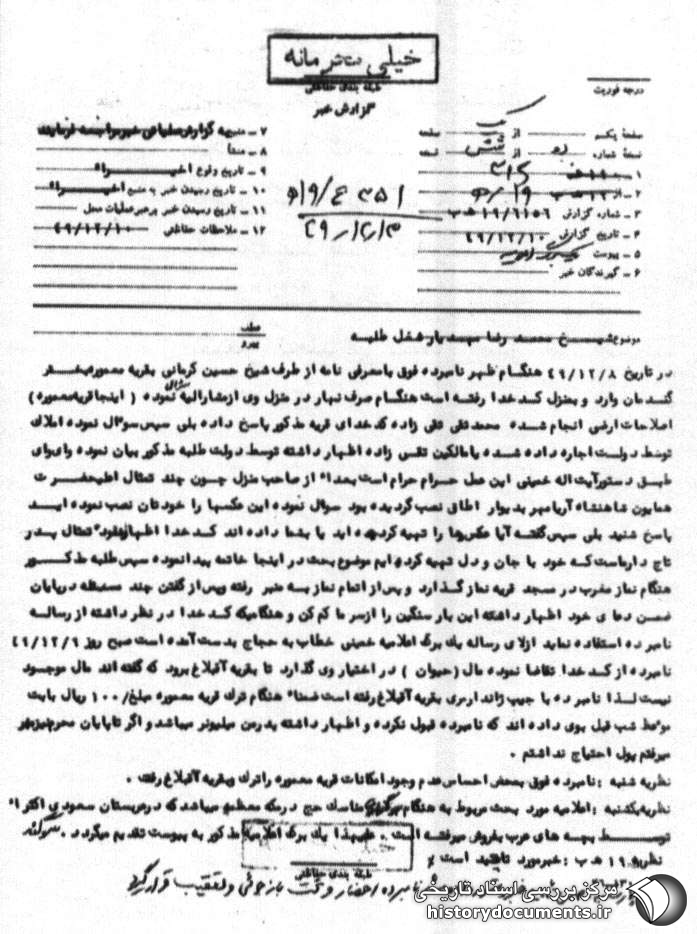 خیلی محرمانه
طبقه بندی حفاظتی
گزارش خبر
درجه فوریت
صفحه یکم از یک صفحه
نسخه شماره از شش نسخه
۱ - به ۳۱۵
۲ - از ۱۹ ه ب
۳ - شماره گزارش ۱۹/۶۱۵۶ ه ب
۴ - تاریخ گزارش ۴۹/۱۲/۱۰
۵ - پیوست
۶ - گیرندگان خبر
۷ - منبع
۸ - منشأ
۹ - تاریخ وقوع اخیراً
۱۰ - تاریخ رسیدن خبر به منبع اخیراً
۱۱ - تاریخ رسیدن خبر برهبر عملیات محل
۱۲ - ملاحظات حفاظتی ۴۹/۱۲/۱۰
عطف
پیرو
موضوع شیخ محمد رضا مهدیار شغل طلبه
در تاریخ ۴۹/۱۲/۸ هنگام ظهر نامبرده فوق بامعرفی نامه از طرف شیخ حسین کرمانی بقریه معموره بخش
گندمان وارد و بمنزل کدخدا رفته است هنگام صرف نهار در منزل وی ازمشارالیه سئوالی نموده ( اینجا قریه معموره )
اصلاحات ارضی انجام شده محمدتقی تقی زاده کدخدای قریه مذکور پاسخ داده بلی سپس سوآل نموده املاک
توسط دولت اجاره داده شده یامالکین تقی زاده اظهار داشته توسط دولت طلبه مذکور بیان نموده وای وای
طبق دستورآیت اله خمینی این عمل حرام حرام است بعداً از صاحب منزل چون چند تمثال اعلیحضرت
همایون شاهنشاه آریامهر بدیوار اطاق نصب گردیده بود سوال نموده این عکسها را خودتان نصب نموده اید
پاسخ شنید بلی سپس گفته آیا عکس‌ها را تهیه کرده اید یا بشما داده اند کدخدا اظهار نموده تمثال پدر
تاج دارماست که خود با جان و دل تهیه کرده ایم موضوع بحث در اینجا خاتمه پیدا نموده سپس طلبه مذکور
هنگام نماز مغرب در مسجد قریه نماز گذارد و پس از اتمام نماز بسه منبر رفته وپس از گفتن چند مسئله درپایان
ضمن دعای خود اظهار داشته این بار سنگین را ازسر ما کم کن و هنگامیکه کدخدا در نظر داشته از رساله
نامبرده استفاده نماید ازلای رساله یک برگ اعلامیه خمینی خطاب به حجاج بدست آمده است صبح روز ۴۹/۱۲/۹
نامبرده از کدخدا تقاضا نموده مال (حیوان ) در اختیار وی گذارد تا بقریه آقبلاغ برود که گفته اند مال موجود
نیست لذا نامبرده با جیپ ژاندارمری بقریه آقبلاغ رفته است ضمناً هنگام ترک قریه معموره مبلغ/۱۰۰ ریال بابت
موعظ شب قبل بوی داده اند که نامبرده قبول نکرده و اظهار داشته پدر من میلیونر میباشد و اگر تاپایان محرم نیز بهر
میرفتم پول احتیاج نداشتم .
نظریه شنبه : نامبرده فوق بمحض احساس عدم وجود امکانات قریه معموره را ترک وبقریه آقبلاغ رفته .
نظریه یکشنبه : اعلامیه مورد بحث مربوط به هنگام برگزاری مناسک حج در مکه معظمه میباشد که در عربستان سعودی اکثراً
توسط بچه های عرب بفروش میرفته است . علیهذا یک برگ اعلامیه مذکور به پیوست تقدیم میگردد .
نظریه ۱۹ ه ب : خبر مورد تائید است
طبقه بندی حفاظتی
نامبرده احضار و تحت بازجوئی و تعقیب قرار گیرد
مرکز بررسی اسناد تاریخی
historydocuments.ir